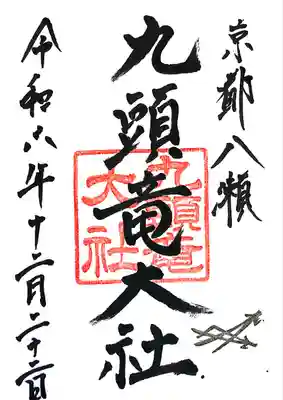 京都八瀬
九頭竜大社
九頭竜
大社
令和六年十二月二十二日